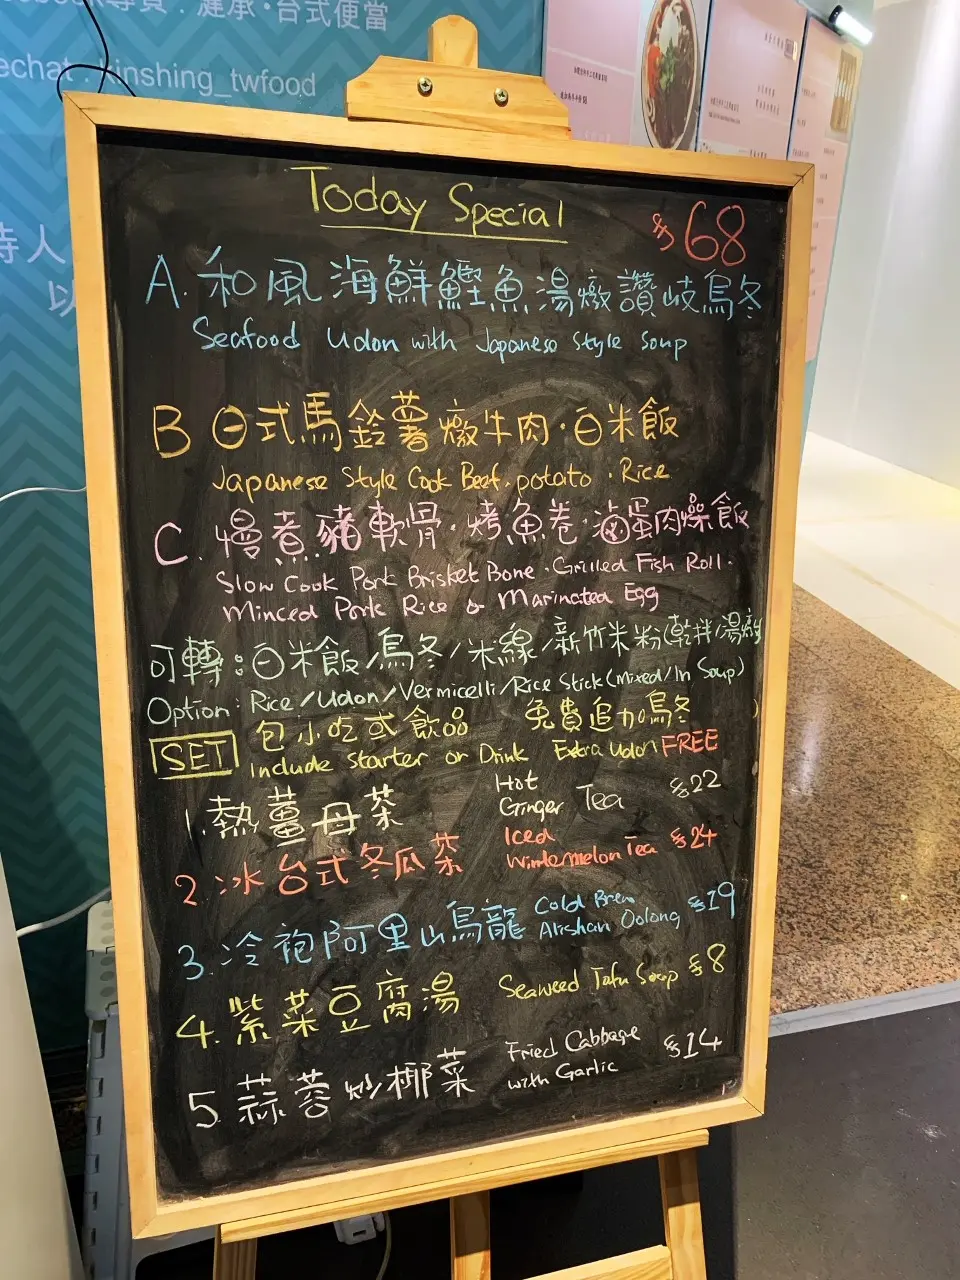 專頁：漣承·台式便當
echat : inshing_twfood
待人
以
Today Special
$68
A. 和風海鮮鰹魚湯燉讚岐烏冬
Seafood Udon with Japanese Style Soup
B 日式馬鈴薯燉牛肉·白米飯
Japanese Style Cook Beef · potato · Rice
C. 慢煮豬軟骨·烤魚卷·滷蛋肉燥飯
Slow Cook Pork Brisket Bone · Grilled Fish Roll ·
Minced Pork Rice & Marinated Egg
可轉：白米飯/烏冬/米線/新竹米粉(乾拌/湯燉
Option : Rice/Udon/Vermicelli/Rice Stick(Mixed/In Soup)
SET 包小吃或飲品 免費追加烏冬
Include Starter or Drink Extra Udon FREE
1. 熱薑母茶 Hot Ginger Tea $22
2. 冰台式冬瓜茶 Iced Wintermelon Tea $24
3. 冷袍阿里山烏龍 Cold Brew Alishan Oolong $19
4. 紫菜豆腐湯 Seaweed Tofu Soup $8
5. 蒜蓉炒椰菜 Fried Cabbage with Garlic $14